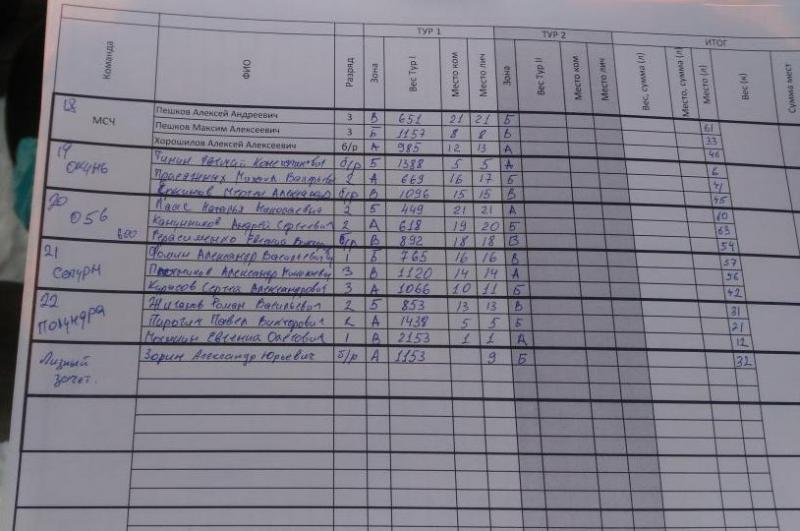 ТУР 1 ТУР 2 ИТОГ
Команда ФИО Разряд Зона Вес Тур I Место ком Место лич Зона Вес Тур II Место ком Место лич Вес, сумма (л) Место, сумма (л) Место (л) Вес (к) Сумма мест
18 МСЧ
Пешков Алексей Андреевич 3 В 651 21 21 Б 61
Пешков Максим Алексеевич 3 Б 1157 8 8 В 33
Хорошилов Алексей Алексеевич б/р А 985 12 13 А 46
19 Окунь
б/р Б 1388 5 5 А 6
Михаил 2 А 669 16 17 Б 41
б/р В 1096 15 15 В 45
20 056
Наталья Николаевна 2 Б 449 21 21 А 60
Андрей Сергеевич 2 А 618 19 20 Б 63
Герасименко Евгений б/р В 892 18 18 В 54
21
Фомин Александр Васильевич 1 Б 765 16 16 В 57
Александр 3 В 1120 14 14 А 56
Сергей Александрович 3 А 1066 10 11 Б 42
22 Полундра
Жиганов Роман Васильевич 2 Б 853 13 13 В 31
Пирогин Павел Викторович 2 А 1438 5 5 Б 21
Евгений Олегович 1 В 2153 1 1 А 12
Личный зачет.
Зорин Александр Юрьевич б/р А 1153 9 Б 32